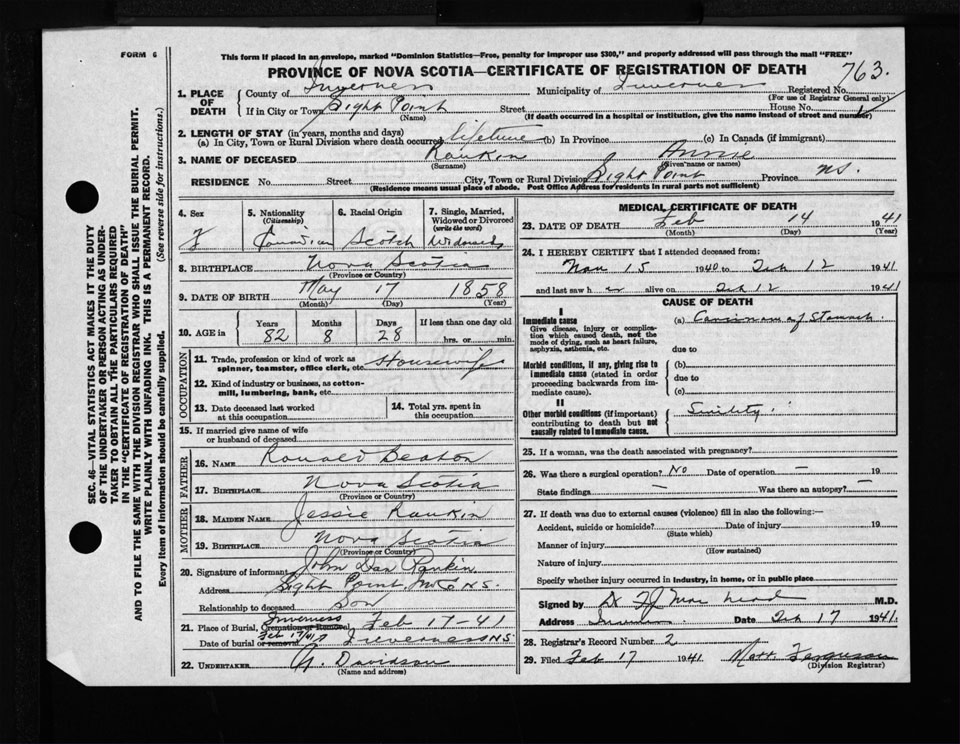 FORM 6
This form if placed in an envelope, marked "Dominion Statistics—Free, penalty for improper use $300," and properly addressed will pass through the mail "FREE"
PROVINCE OF NOVA SCOTIA—CERTIFICATE OF REGISTRATION OF DEATH
763.
1. PLACE OF DEATH County of Inverness Municipality of Inverness Registered No.
(For use of Registrar General only)
If in City or Town Sight Point Street House No.
(Name) (If death occurred in a hospital or institution, give the name instead of street and number)
2. LENGTH OF STAY (in years, months and days)
(a) In City, Town or Rural Division where death occurred lifetime (b) In Province (c) In Canada (if immigrant)
3. NAME OF DECEASED Rankin Annie
(Surname) (Given name or names)
RESIDENCE No. Street City, Town or Rural Division Sight Point Province NS.
(Residence means usual place of abode. Post Office Address for residents in rural parts not sufficient)
4. Sex 5. Nationality (Citizenship) 6. Racial Origin 7. Single, Married, Widowed or Divorced (write the word)
f Canadian Scotch Widowed
8. BIRTHPLACE Nova Scotia
(Province or Country)
9. DATE OF BIRTH May 17 1858
(Month) (Day) (Year)
10. AGE in Years Months Days If less than one day old
82 8 28 hrs. or min.
OCCUPATION
11. Trade, profession or kind of work as spinner, teamster, office clerk, etc. Housewife
12. Kind of industry or business, as cotton-mill, lumbering, bank, etc.
13. Date deceased last worked at this occupation 14. Total yrs. spent in this occupation
15. If married give name of wife or husband of deceased
FATHER
16. NAME Ronald Beaton
17. BIRTHPLACE Nova Scotia
(Province or Country)
MOTHER
18. MAIDEN NAME Jessie Rankin
19. BIRTHPLACE Nova Scotia
(Province or Country)
20. Signature of informant John Dan Rankin
Address Sight Point, N.S.
Relationship to deceased Son
21. Place of Burial, Cremation or Removal Inverness Feb 17-41
Date of burial or removal Feb 17/41 Inverness N.S.
22. UNDERTAKER A. Davidson
(Name and address)
MEDICAL CERTIFICATE OF DEATH
23. DATE OF DEATH Feb 14 1941
(Month) (Day) (Year)
24. I HEREBY CERTIFY that I attended deceased from:
Nov 15 1940 to Feb 12 1941
and last saw her alive on Feb 12 1941
CAUSE OF DEATH
I
Immediate cause (a) Carcinoma of Stomach.
Give disease, injury or complication which caused death, not the mode of dying, such as heart failure, asphyxia, asthenia, etc. due to
Morbid conditions, if any, giving rise to immediate cause (stated in order proceeding backwards from immediate cause). (b)
due to
(c)
II
Other morbid conditions (if important) contributing to death but not causally related to immediate cause. Senility.
25. If a woman, was the death associated with pregnancy?
26. Was there a surgical operation? No Date of operation — 19
State findings — Was there an autopsy? —
27. If death was due to external causes (violence) fill in also the following:—
Accident, suicide or homicide? Date of injury 19
(State which)
Manner of injury
(How sustained)
Nature of injury
Specify whether injury occurred in industry, in home, or in public place
Signed by Dr FJ MacLeod M.D.
Address Date Feb 17 1941.
28. Registrar's Record Number 2
29. Filed Feb 17 1941 Ferguson
(Division Registrar)
SEC. 46—VITAL STATISTICS ACT MAKES IT THE DUTY
OF THE UNDERTAKER OR PERSON ACTING AS UNDER-
TAKER TO OBTAIN ALL THE PARTICULARS REQUIRED
IN THE "CERTIFICATE OF REGISTRATION OF DEATH"
AND TO FILE THE SAME WITH THE DIVISION REGISTRAR WHO SHALL ISSUE THE BURIAL PERMIT.
WRITE PLAINLY WITH UNFADING INK. THIS IS A PERMANENT RECORD.
Every item of information should be carefully supplied. (See reverse side for instructions.)